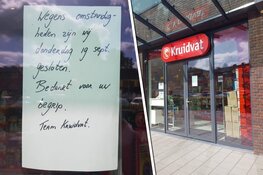 Wegens omstandig-
heden zijn wij
donderdag 19 sept.
gesloten.
Bedankt voor uw
begrip.
Team Kruidvat.
Kruidvat